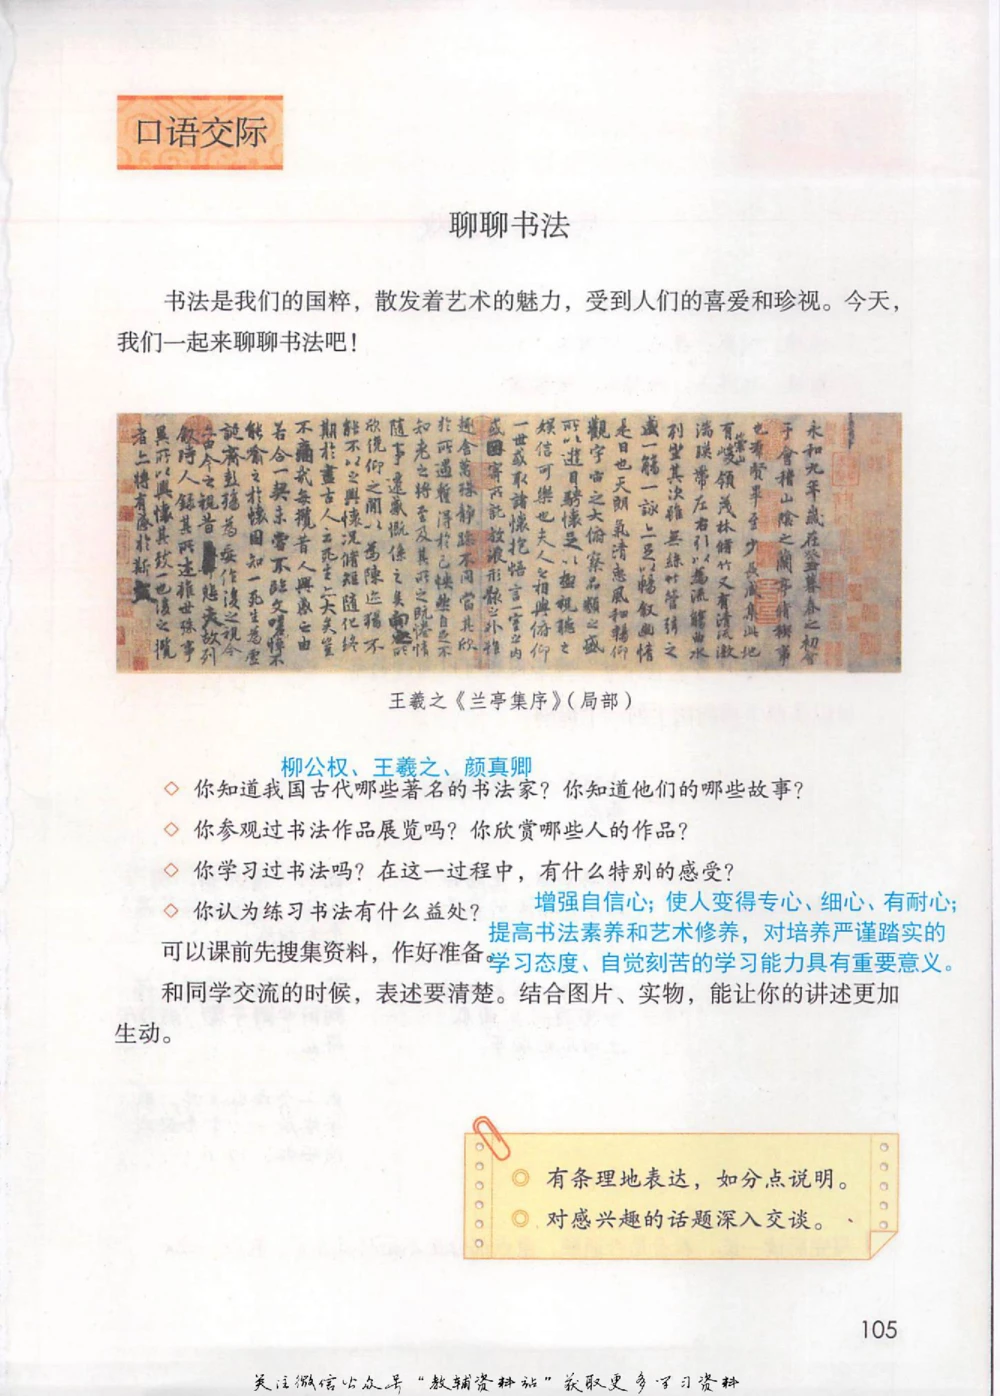 口语交际
聊聊书法
书法是我们的国粹，散发着艺术的魅力，受到人们的喜爱和珍视。今天，
我们一起来聊聊书法吧！
永和九年歲在癸丑暮春之初會
于會稽山陰之蘭亭脩稧事
也羣賢畢至少長咸集此地
有崇山峻領茂林脩竹又有清流激
湍暎帶左右引以為流觴曲水
列坐其次雖無絲竹管弦之
盛一觴一詠上足以暢叙幽情
是日也天朗氣清惠風和暢仰
觀宇宙之大俯察品類之盛
所以遊目騁懷足以極視聽之
娛信可樂也夫人之相與俯仰
一世或取諸懷抱悟言一室之內
或因寄所託放浪形骸之外雖
趣舍萬殊靜躁不同當其欣
於所遇暫得於己怏然自足不
知老之將至及其所之既惓情
隨事遷感慨係之矣向之所
欣俛仰之閒以為陳迹猶不
能不以之興懷況脩短隨化終
期於盡古人云死生亦大矣豈
不痛哉每攬昔人興感之由
若合一契未嘗不臨文嗟悼不
能喻之於懷固知一死生為虛
誕齊彭殤為妄作後之視今
亦由今之視昔悲夫故列
敘時人錄其所述雖世殊事
異所以興懷其致一也後之攬
者亦將有感於斯文
王羲之《兰亭集序》（局部）
柳公权、王羲之、颜真卿
◇ 你知道我国古代哪些著名的书法家？你知道他们的哪些故事？
◇ 你参观过书法作品展览吗？你欣赏哪些人的作品？
◇ 你学习过书法吗？在这一过程中，有什么特别的感受？
◇ 你认为练习书法有什么益处？
增强自信心；使人变得专心、细心、有耐心；
提高书法素养和艺术修养，对培养严谨踏实的
学习态度、自觉刻苦的学习能力具有重要意义。
可以课前先搜集资料，作好准备。
和同学交流的时候，表述要清楚。结合图片、实物，能让你的讲述更加
生动。
◎ 有条理地表达，如分点说明。
◎ 对感兴趣的话题深入交谈。
105
关注微信公众号“教辅资料站”获取更多学习资料